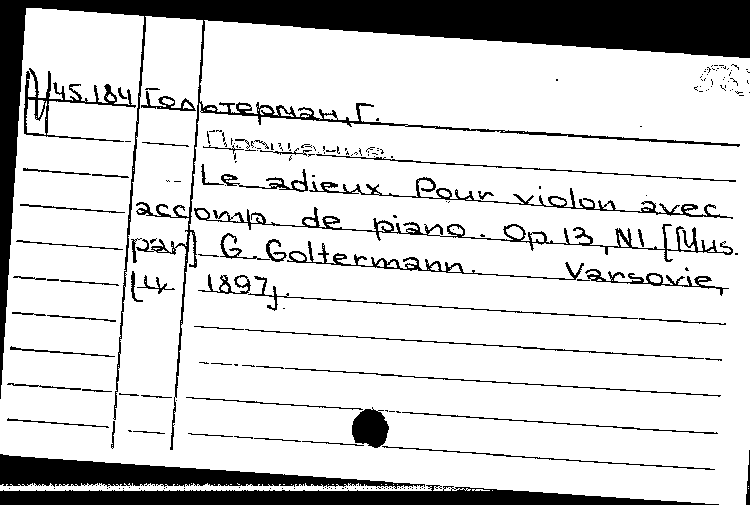 45.184 Гольтерман, Г.
Прощание.
Le adieux. Pour violon avec
accomp. de piano. Op. 13, N1. [Mus.
par] G. Goltermann. Varsovie,
1897].